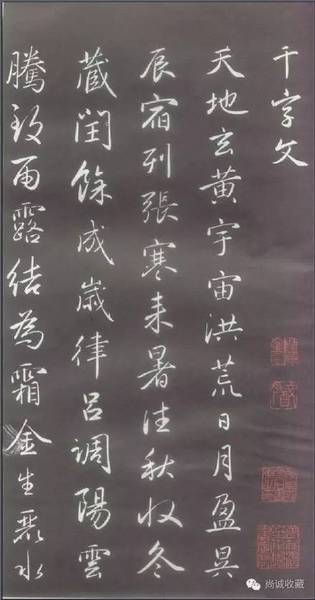 千字文
天地玄黃宇宙洪荒日月盈昃
辰宿列張寒来暑往秋收冬
藏閏餘成歲律呂調陽雲
騰致雨露結為霜金生麗水
尚诚收藏